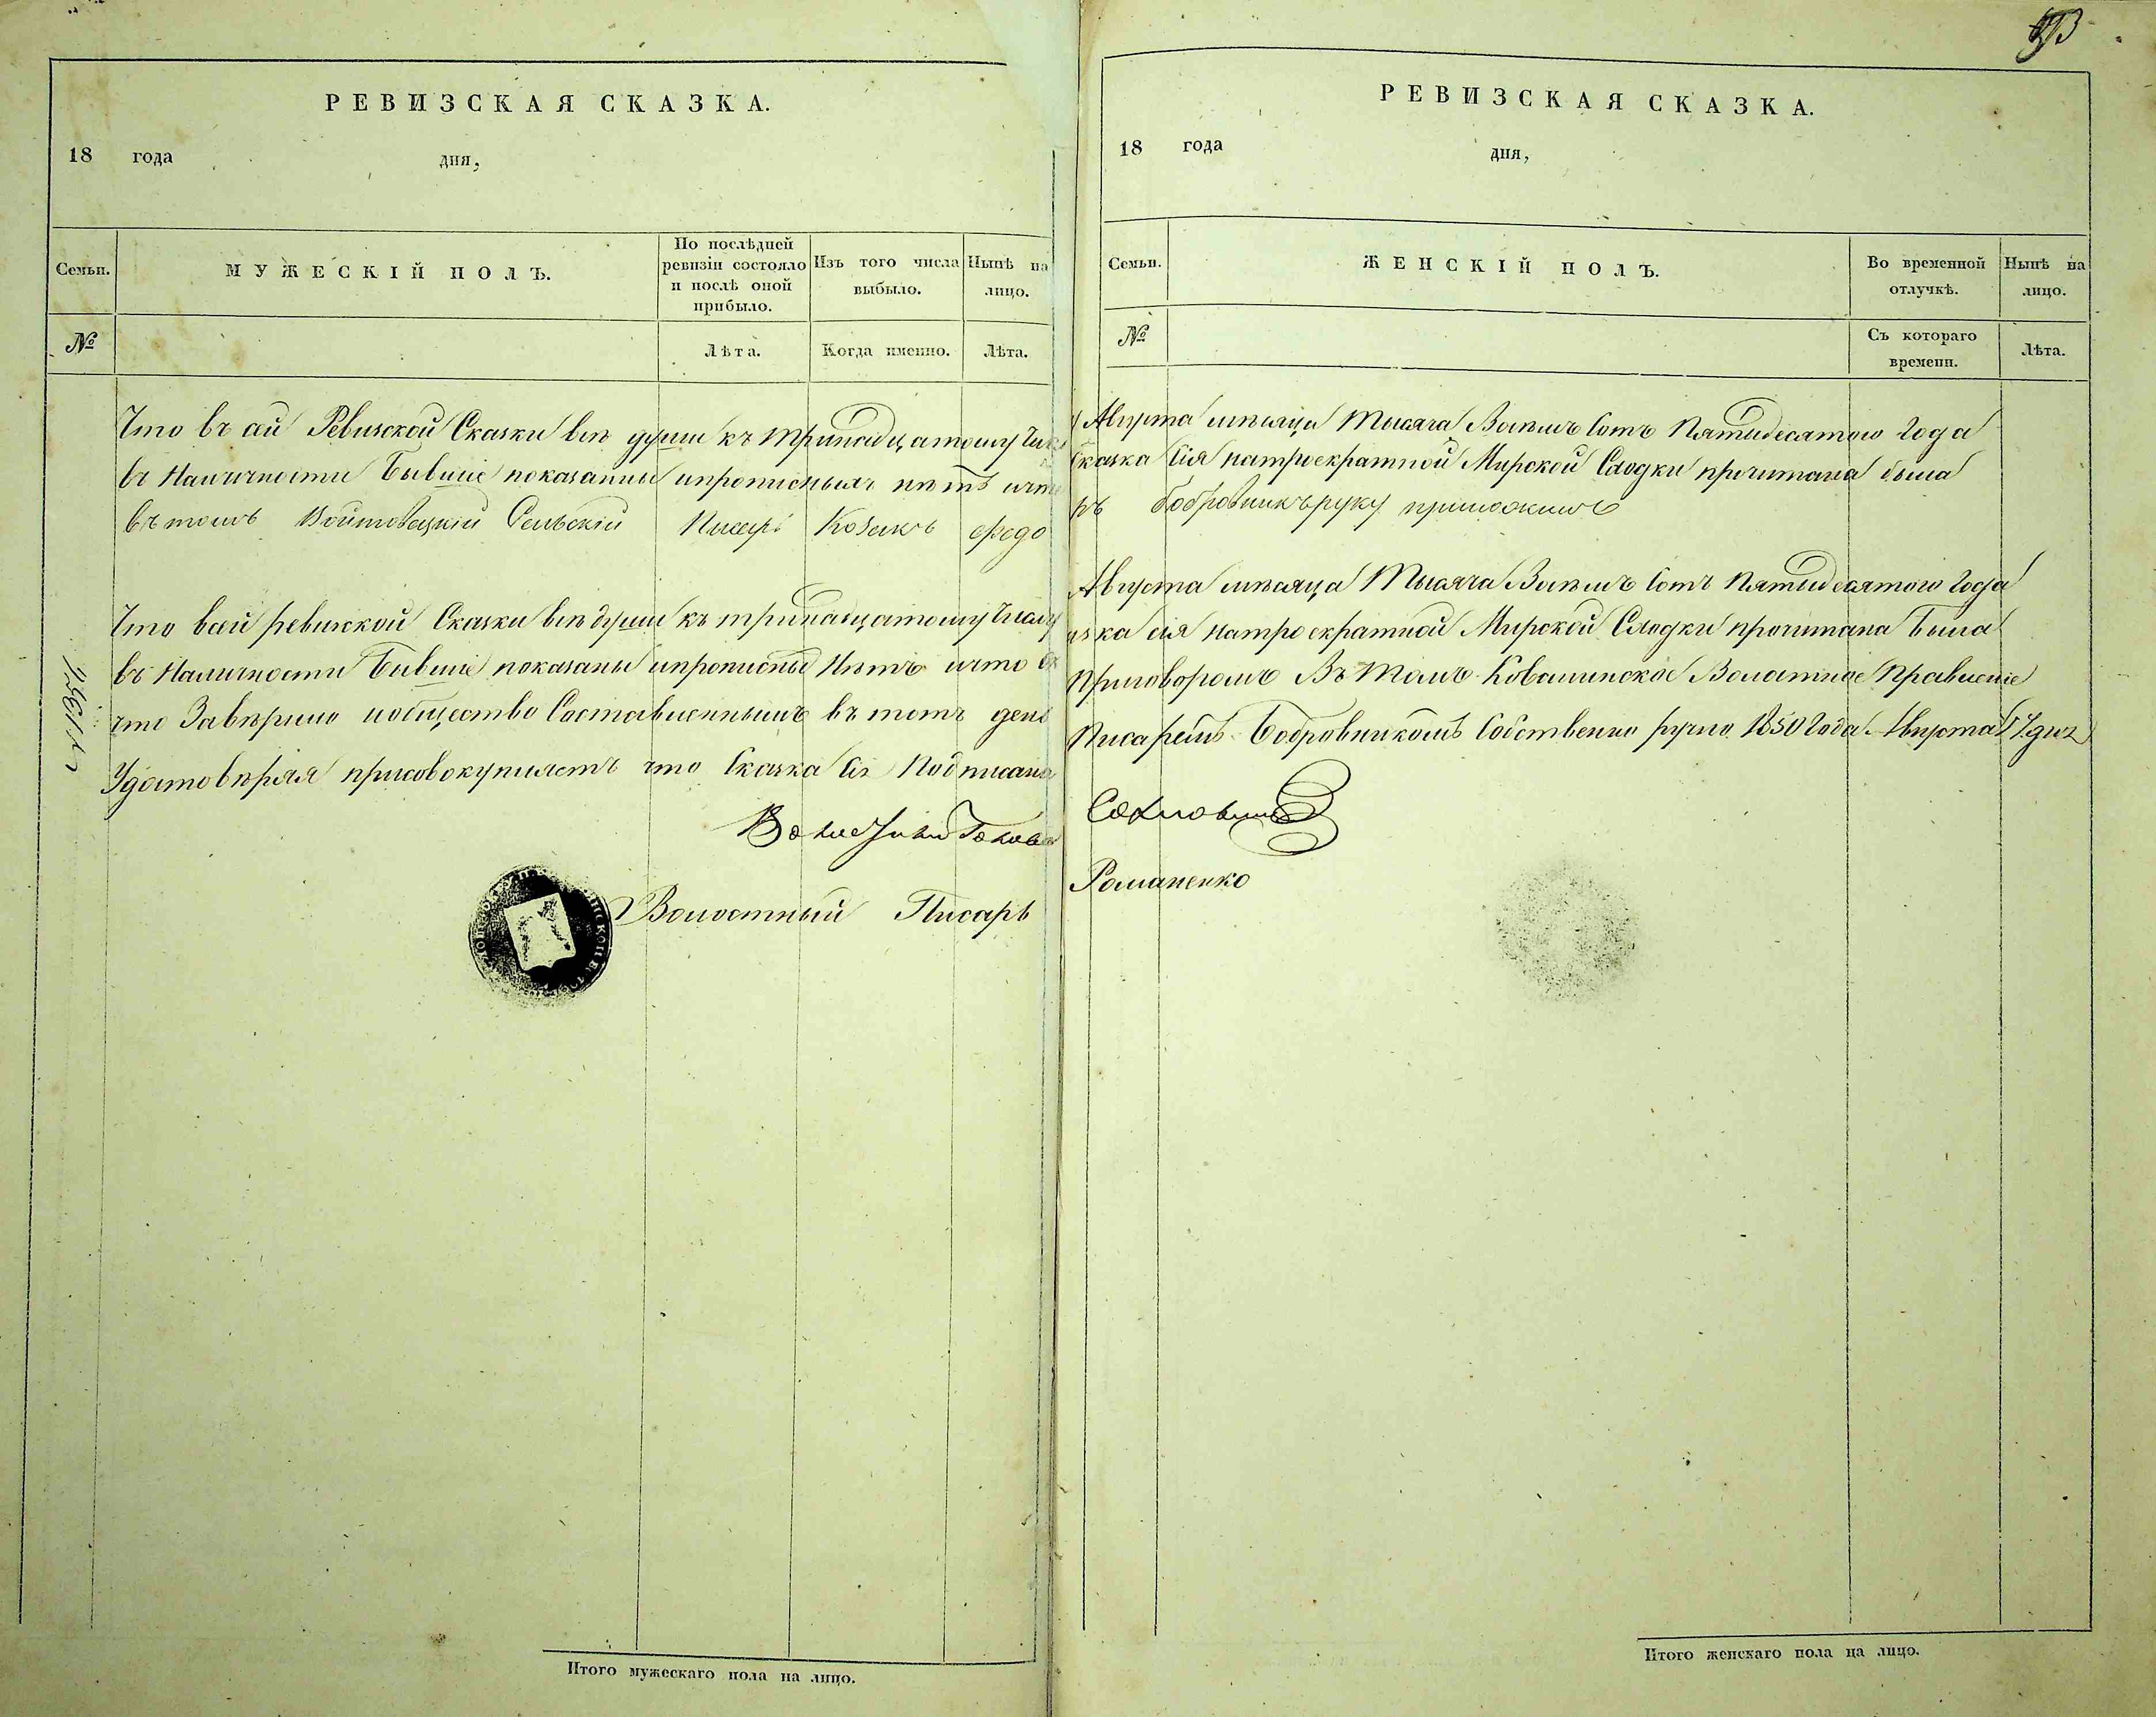 РЕВИЗСКАЯ СКАЗКА.
18 года дня,
Семьи. МУЖЕСКІЙ ПОЛЪ. По послѣдней ревизіи состояло и послѣ оной прибыло. Изъ того числа выбыло. Нынѣ на лицо.
№ Лѣта. Когда именно. Лѣта.
Что въ сей Ревизской Сказки всѣ души къ тринадцатому Чис
въ Наличности Бывшіе показанны ипрописныхъ нѣтъ ичто
въ томъ Войтовецкій Сельскій Писарь Козакъ Федо
Что всей ревизской Сказки всѣ души къ тринадцатому Числу
въ Наличности Бывшіе показаны ипрописны Нѣтъ ичто Ск
что Завѣрило иобщество Составленнымъ въ тотъ день
Удостовѣряя присовокупляетъ что Сказка Сія Подписана
Волостной Голова
Волостный Писарь
Итого мужескаго пола на лицо.
РЕВИЗСКАЯ СКАЗКА.
18 года дня,
Семьи. ЖЕНСКІЙ ПОЛЪ. Во временной отлучкѣ. Нынѣ на лицо.
№ Съ котораго времени. Лѣта.
Августа мѣсяца Тысяча Восемъ Сотъ Пятидесятого Года
Сказка Сія натроекратной Мирской Сходки прочитана была
ръ Бобровникъ руку приложилъ
Августа мѣсяца Тысяча Восемъ Сотъ Пятидесятого Года
зка сія натроекратной Мирской Сходки прочитана Была
Приговоромъ Въ томъ Ковалинское Волостное Правленіе
Писаремъ Бобровникомъ Собственно ручно 1850 Года Августа 17 дня
Романенко
Итого женскаго пола на лицо.